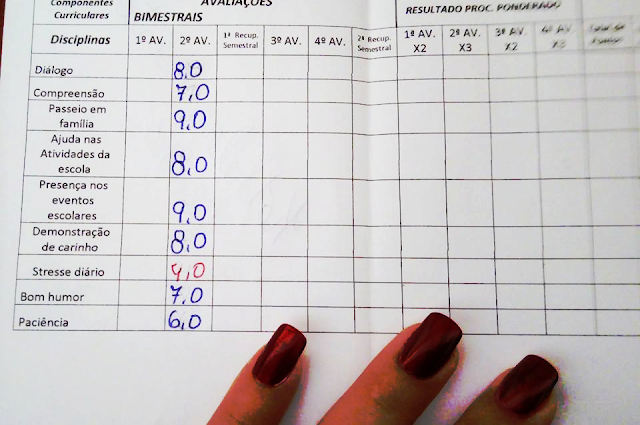 Componentes
Curriculares
AVALIAÇÕES
BIMESTRAIS
RESULTADO PROC. PONDERADO
Disciplinas 1ª AV. 2ª AV. 1ª Recup. Semestral 3ª AV. 4ª AV. 2ª Recup. Semestral 1ª AV. X2 2ª AV. X3 3ª AV. X2 4ª AV. X3
Diálogo 8,0
Compreensão 7,0
Passeio em
família 9,0
Ajuda nas
Atividades da
escola 8,0
Presença nos
eventos
escolares 9,0
Demonstração
de carinho 8,0
Stresse diário 4,0
Bom humor 7,0
Paciência 6,0